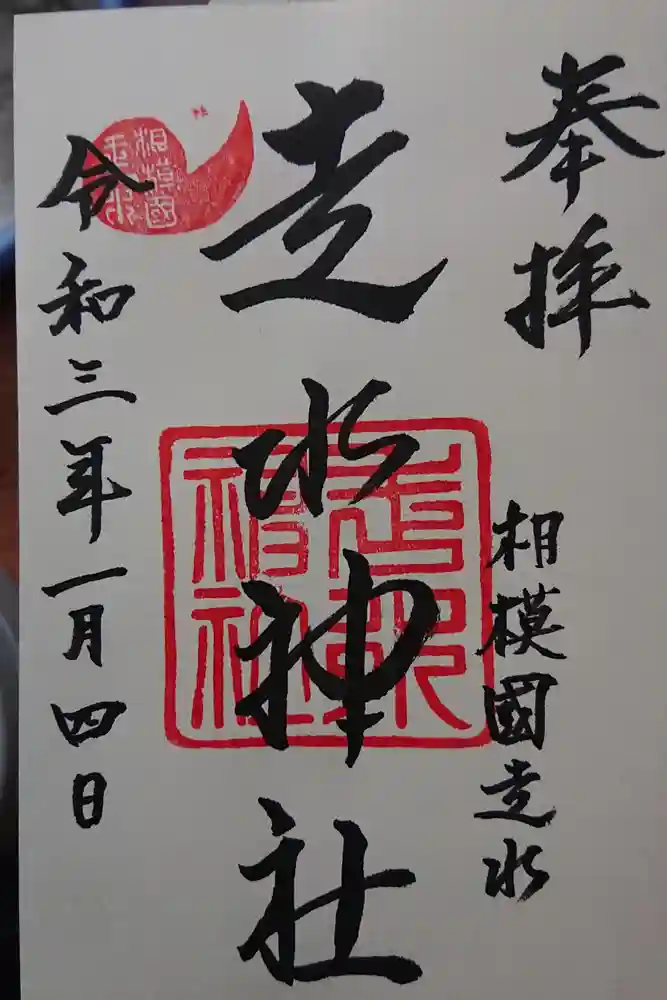 奉拝
相模國走水
走水神社
令和三年一月四日
相模國
走水
走水
神社